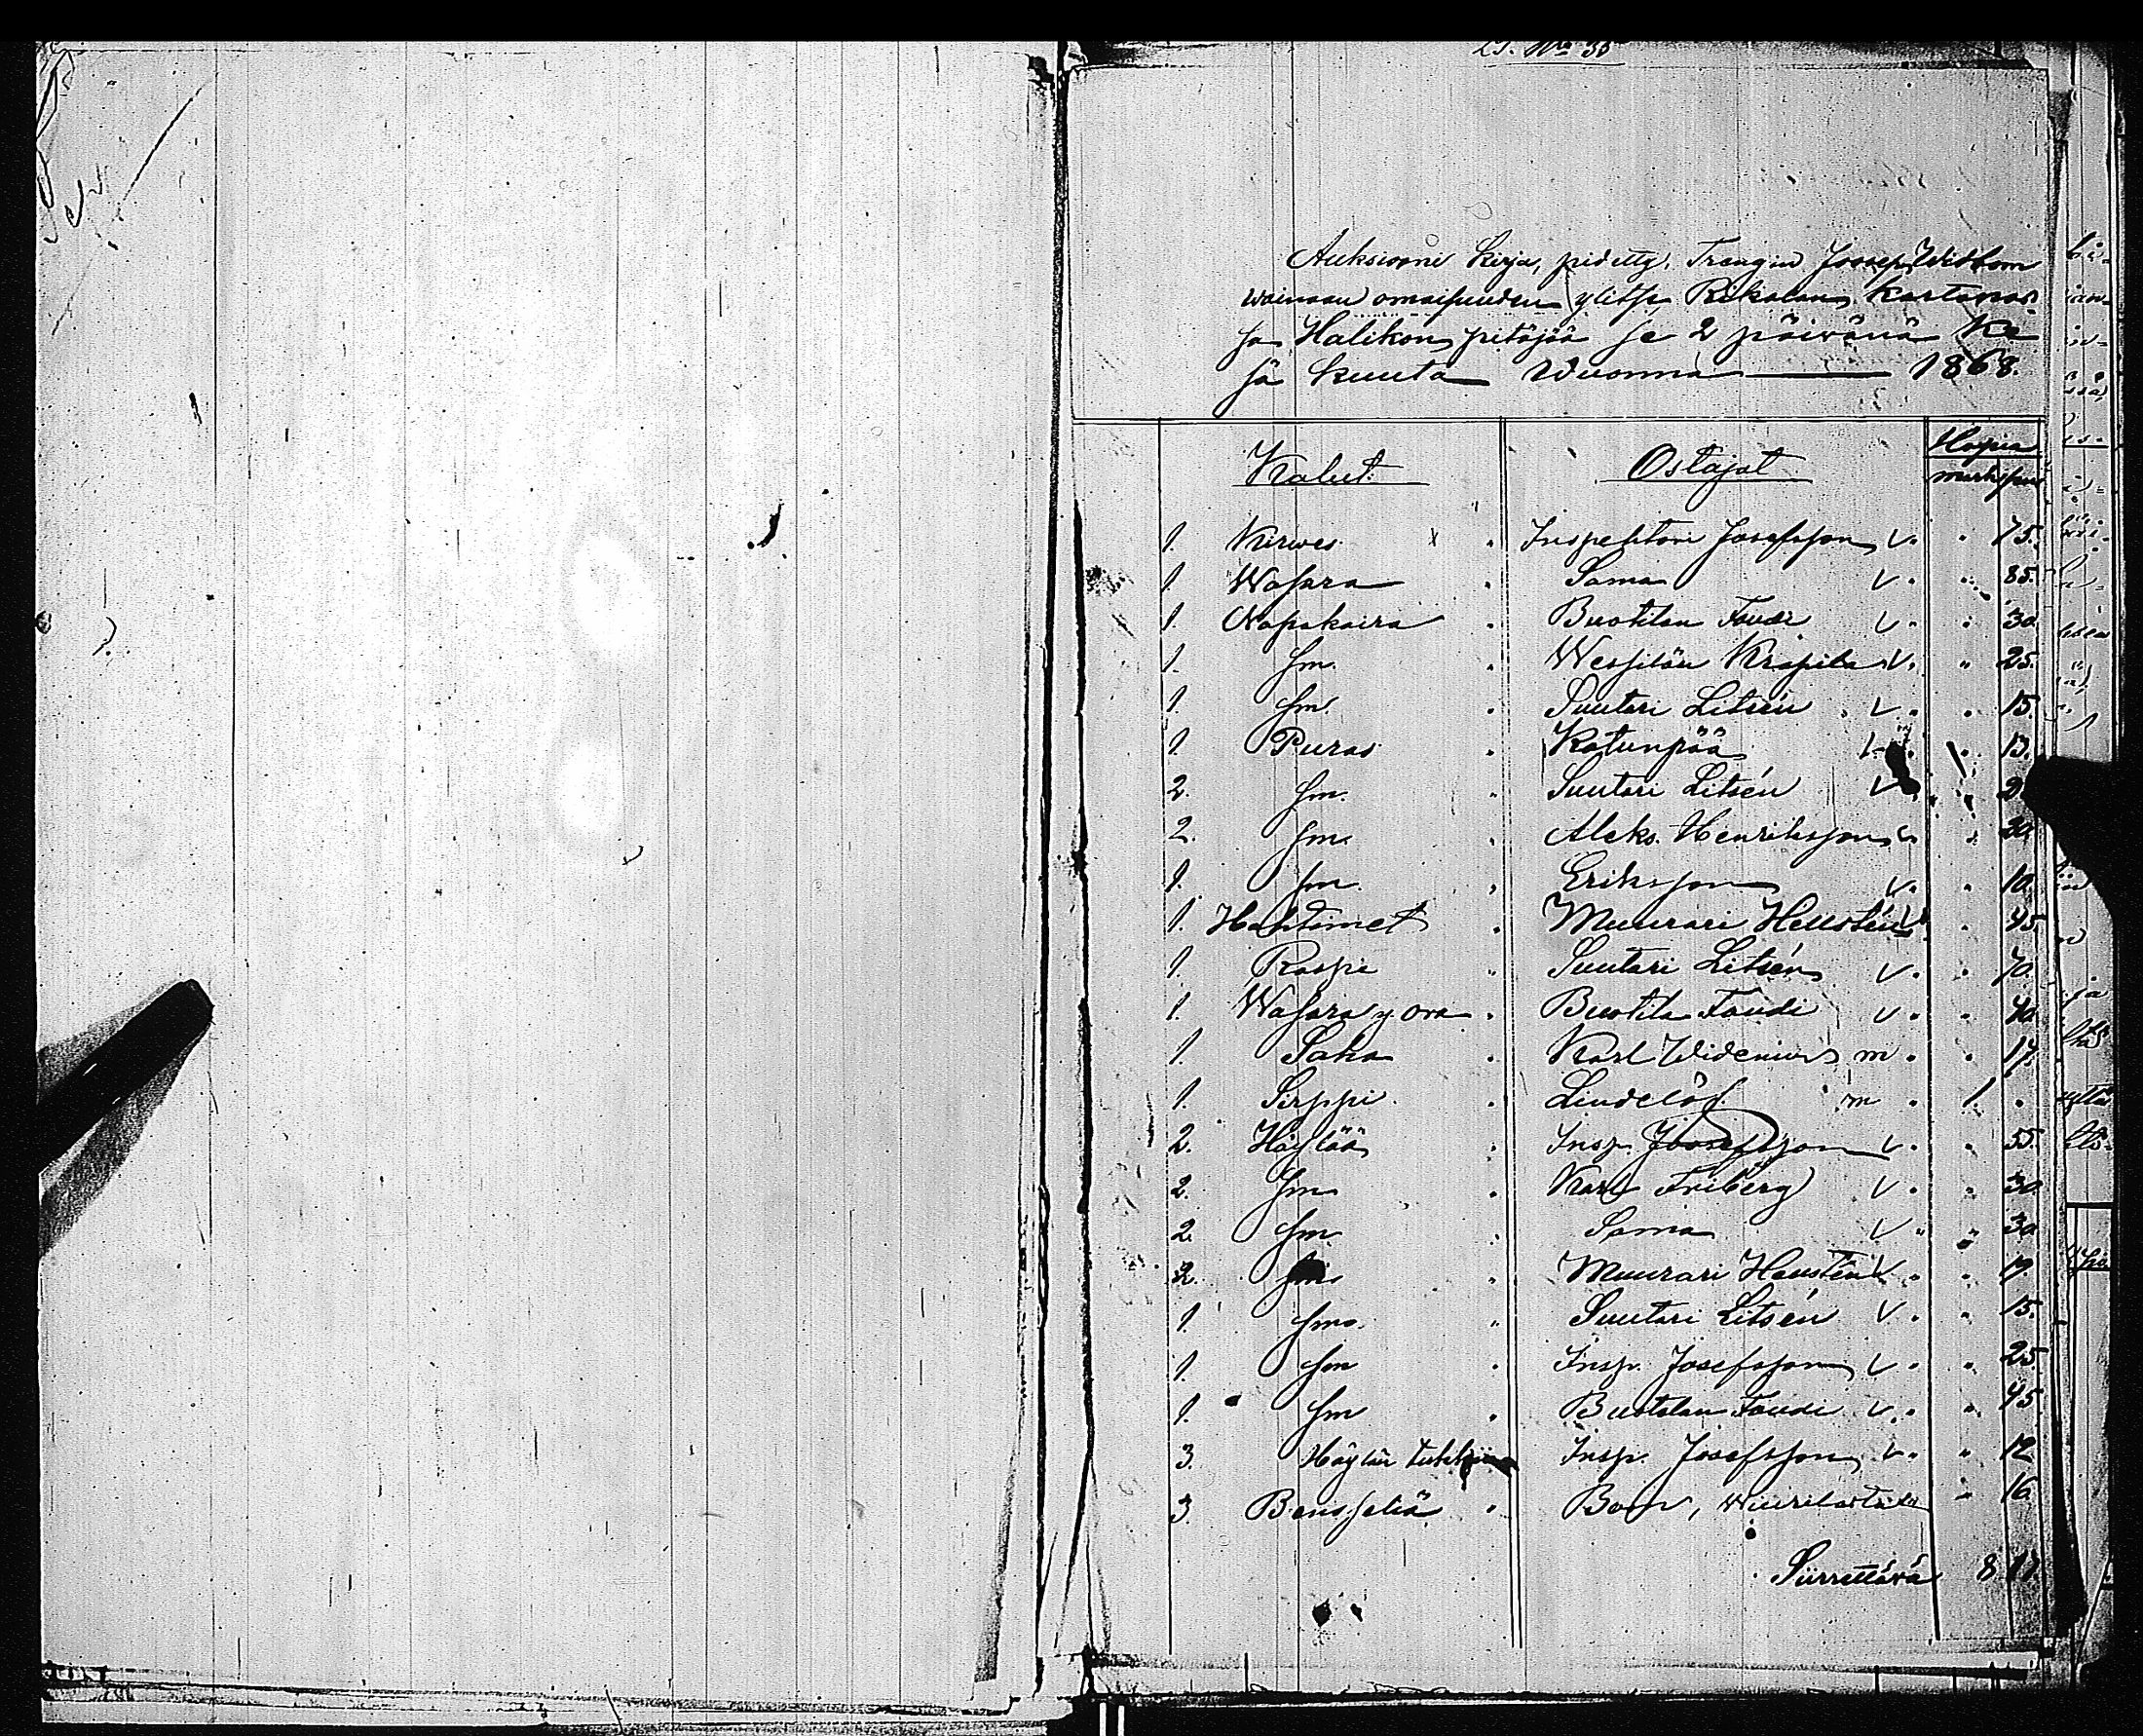 Auksioone Kirja, pidetty, Trengin Joosep Widbom
wainaan omaisuuden ylitse, Rikalan Kartanos
sa Halikon pitäjää se 2 päiwänä Ke
sä kuuta Wuonna 1868.
Kalut. Ostajat Hopia
1. Kirwes. Inspehtori Josefsson V. " 75.
1. Wasara " Sama V. " 85.
1. Napakaira " Buotilan Foudi V. " 30
1. sm. " Wessilän Krapila V. " 25.
1. sm. " Suutari Litsén V. " 15.
1. Puras " Katunpää " 13.
2. sm. " Suutari Litsén V.
2. sm. " Aleks. Henriksson " 30
1. sm. " Eriksson V. " 10.
1. Hohtimet " Muurari Hellstén " 45
1. Raspi " Suutari Litsén V. " 70.
1. Wasara y. ora " Buotila Foudi V. " 40
1. Saha " Karl Widenius m. " 17.
1. Sirppi " Lindelöf m. 1 "
2. Höylää " Insp. Joosefsson V. " 55
2. sm " Karl Friberg V. " 30
2. sm " Sama V. " 30
2. sm " Muurari Hellstén V. "
1. sm. " Suutari Litsén V. " 15.
1. sm " Insp. Josefsson V. " 25
1. sm " Buotilan Foudi V. " 45
3. Höylän Insp. Josefsson V. " 12
3. " 16
Siirrettävä 8 17.